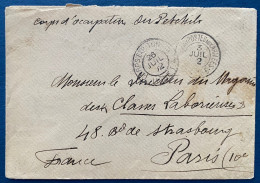 corps d'occupation du Petchili
3
JUIL
2
Monsieur le Directeur du Magasin
des Classes Laborieuses
48. Bd de Strasbourg
Paris (10e
France